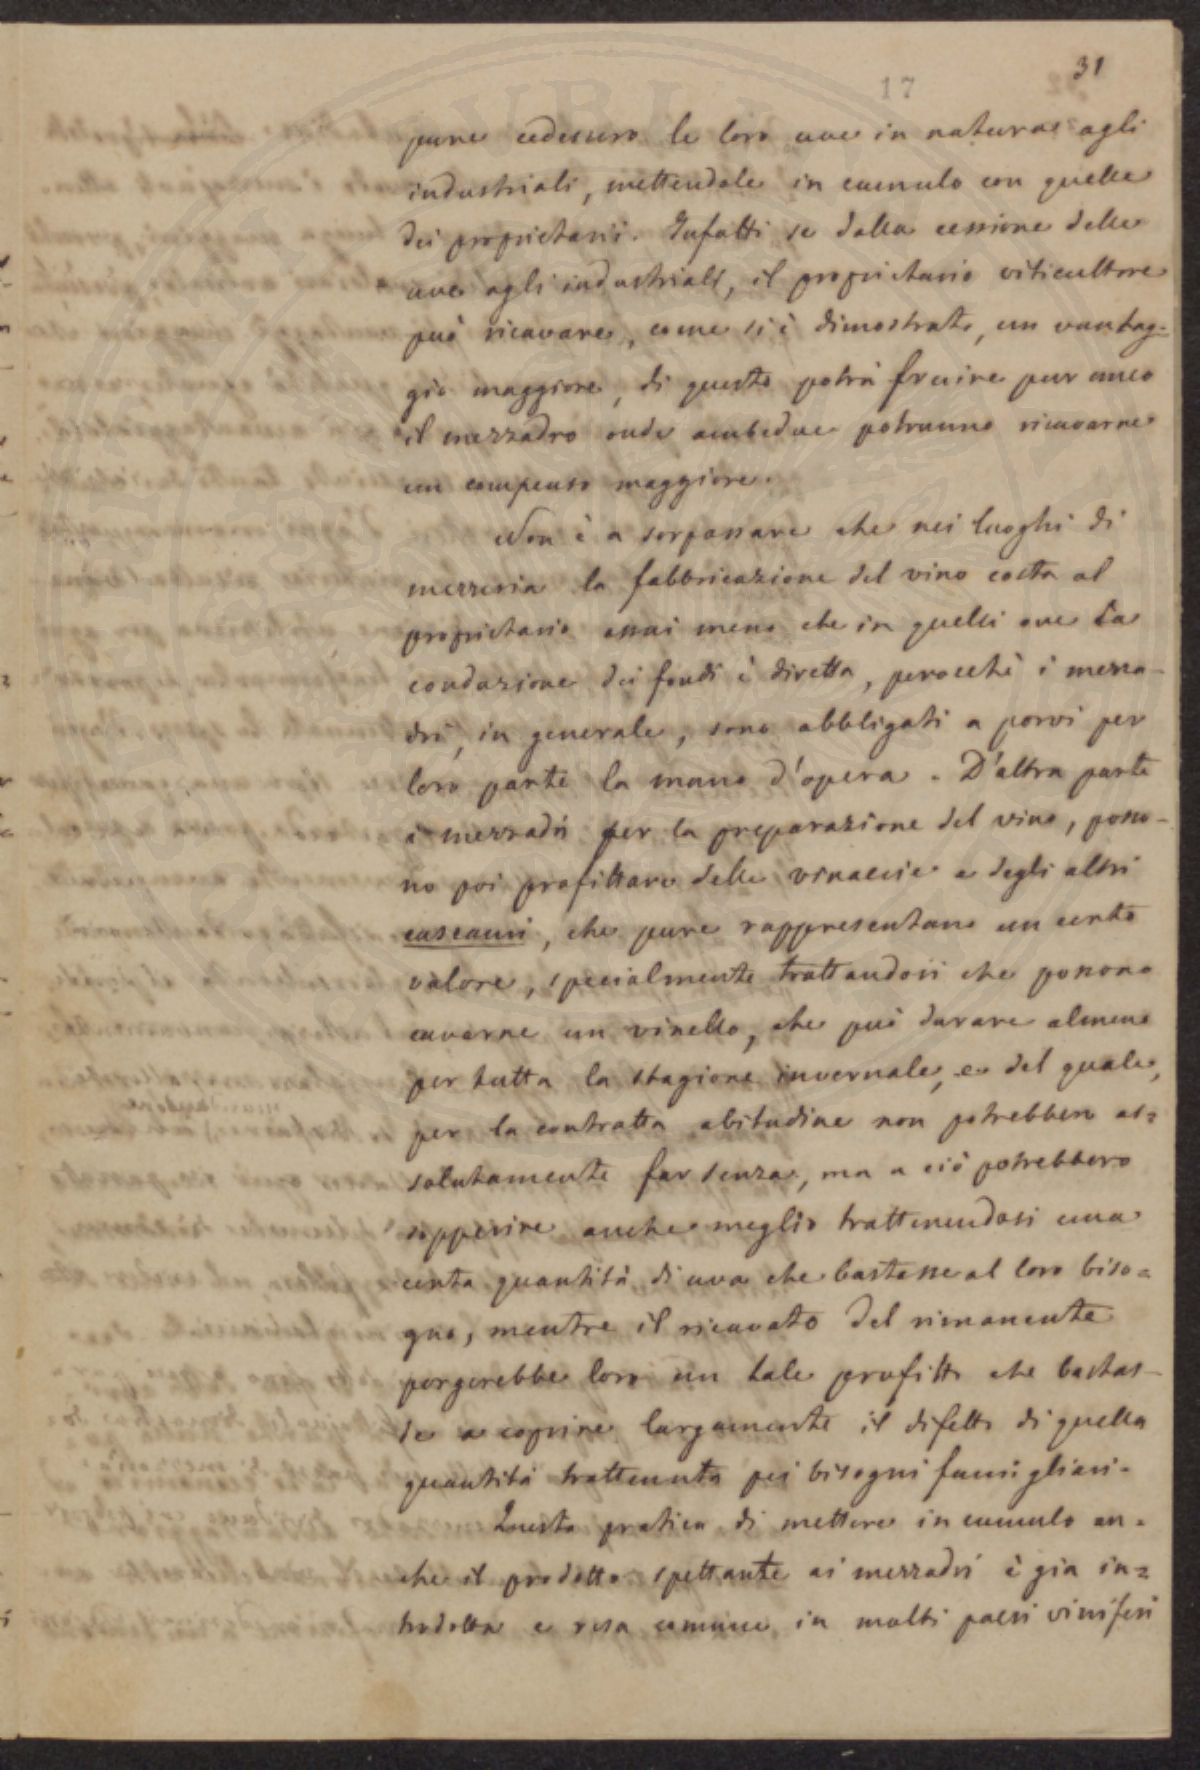 31
17
pure cedessero le loro uve in natura agli
industriali, mettendole in cumulo con quelle
dei proprietarii. Infatti se dalla cessione delle
uve agli industriali, il proprietario viticultore
può ricavare, come si è dimostrato, un vantag-
gio maggiore, di questo potrà fruire pur anco
il mezzadro onde ambedue potranno ricavarne
un compenso maggiore.
Non è a sorpassare che nei luoghi di
mezzeria la fabbricazione del vino costa al
proprietario assai meno che in quelli ove la
conduzione dei fondi è diretta, perocchè i mezza-
dri, in generale, sono obbligati a porvi per
loro parte la mano d'opera. D'altra parte
i mezzadri per la preparazione del vino, posso-
no poi profittare delle vinaccie e degli altri
cascami, che pure rappresentano un certo
valore, specialmente trattandosi che possono
cavarne un vinello, che può durare almeno
per tutta la stagione invernale, e del quale,
per la contratta abitudine non potrebbero as=
solutamente far senza, ma a ciò potrebbero
sopperire anche meglio trattenendosi una
certa quantità di uva che bastasse al loro biso=
gno, mentre il ricavato del rimanente
porgerebbe loro un tale profitto che bastas-
se a coprire largamente il difetto di quella
quantità trattenuta pei bisogni famigliari.
Questa pratica di mettere in cumulo an-
che il prodotto spettante ai mezzadri è gia in=
trodotta e resa comune in molti paesi viniferi